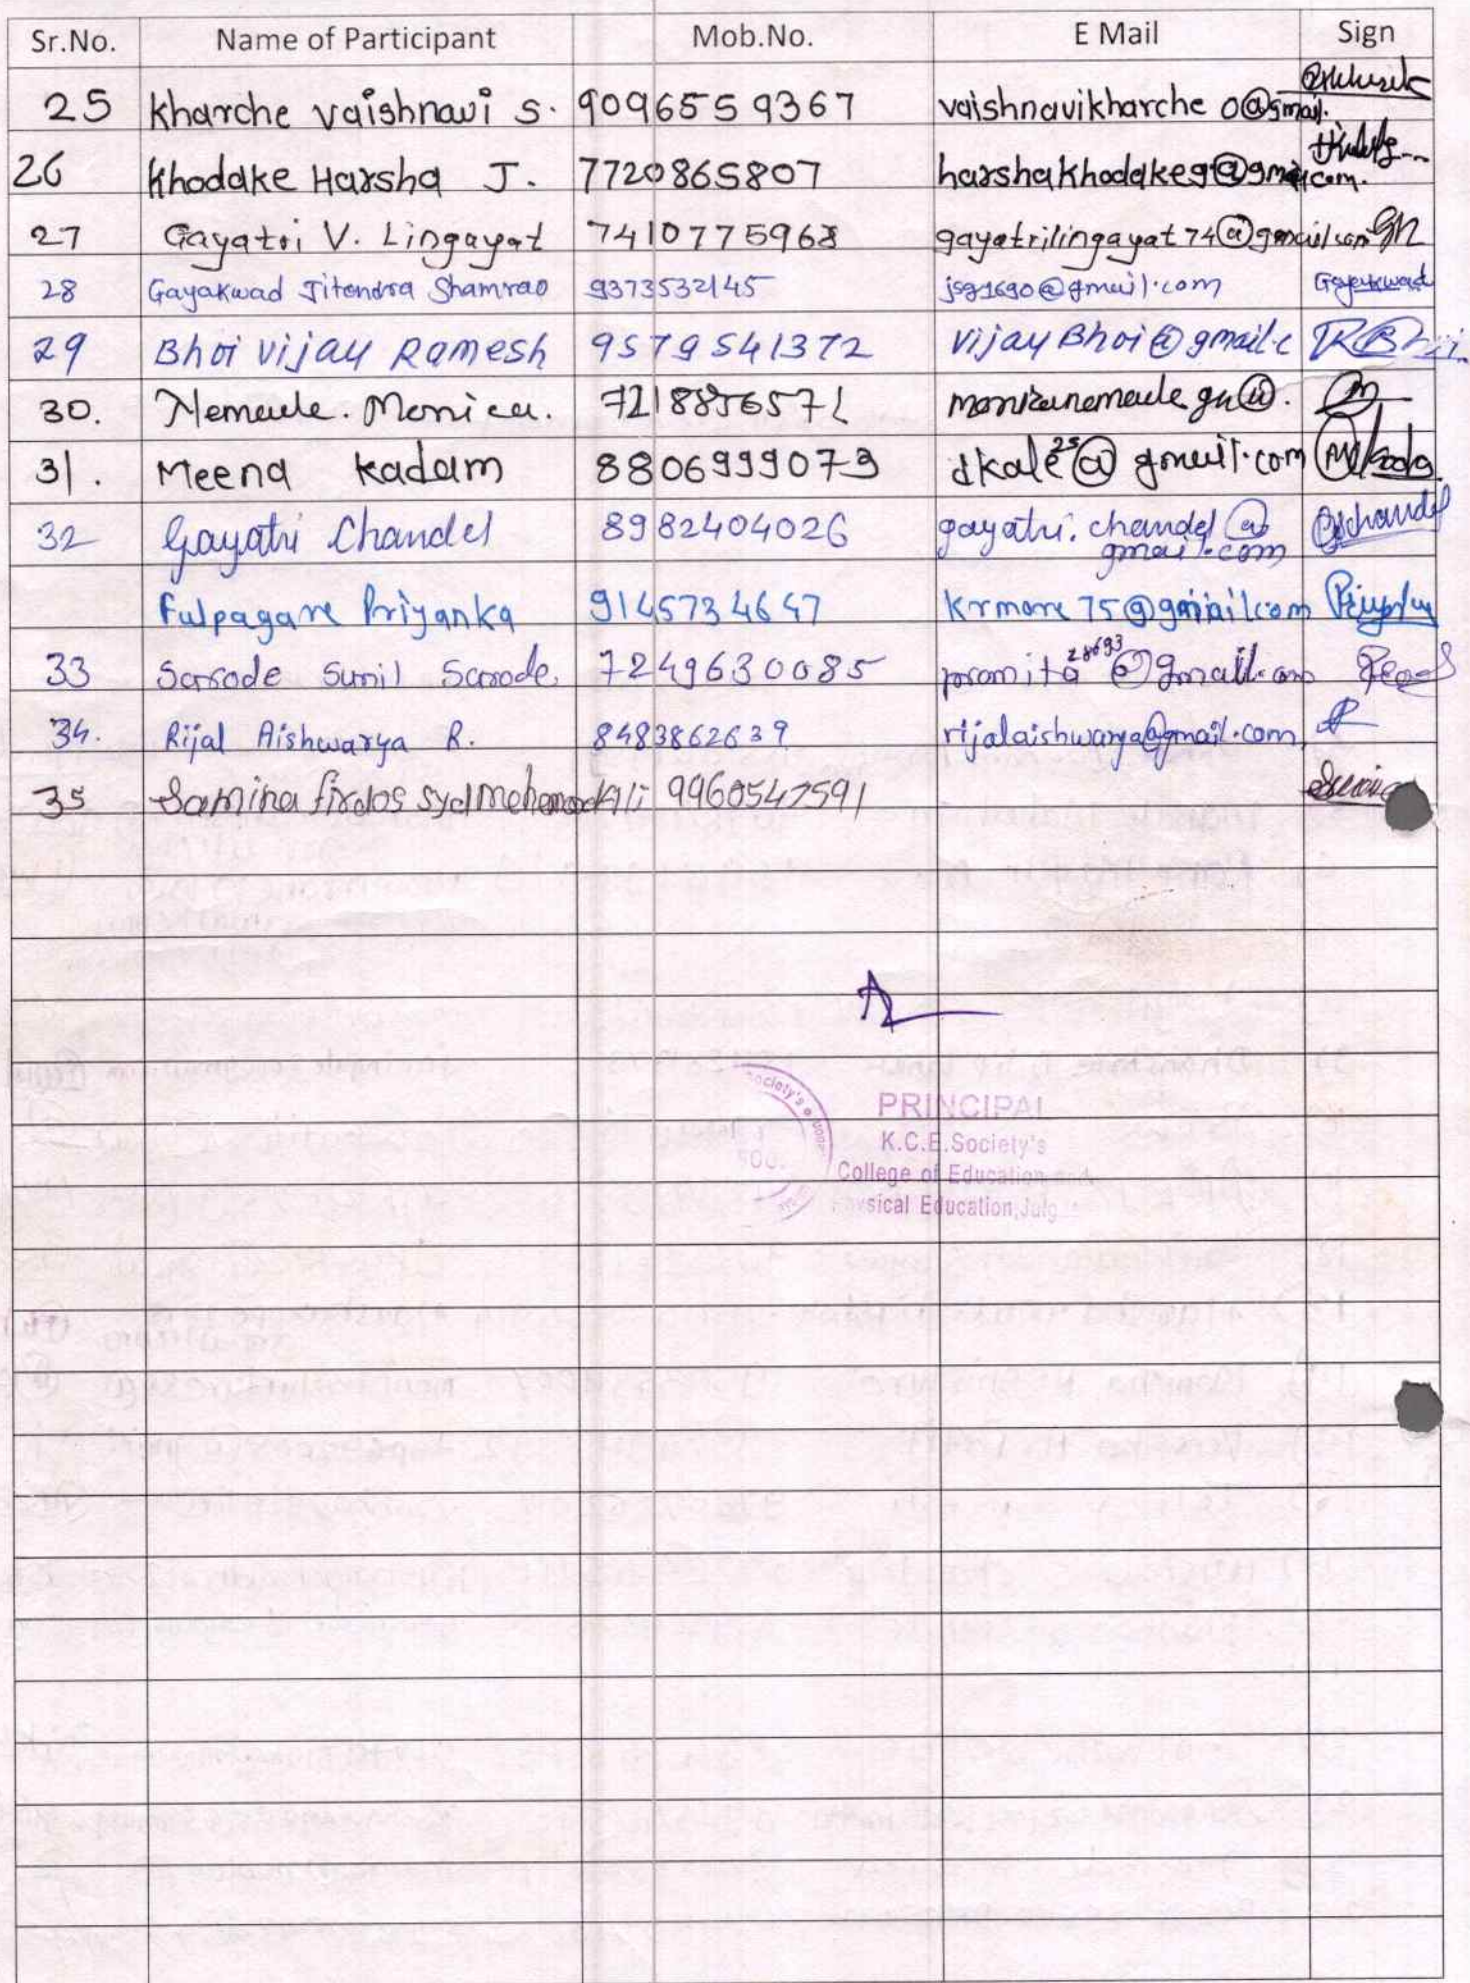 Sr.No. Name of Participant Mob.No. E Mail Sign
25 Kharche Vaishnavi S. 9096559367 vaishnavikharche0@gmail.
26 Khodake Harsha J. 7720865807 harshakhodake9@gmail.com.
27 Gayatri V. Lingayat 7410775968 gayatrilingayat74@gmail.com
28 Gayakwad Jitendra Shamrao 9373532145 jsg1690@gmail.com Gayakwad
29 Bhoi Vijay Ramesh 9579541372 VijayBhoi@gmail.c
30. Nemade. Monica.
31. Meena Kadam 8806999079 dkale25@gmail.com
32 Gayatri Chandel 8982404026 gayatri.chandel@ GChandel
gmail.com
Fulpagare Priyanka 9145734647 Krmore75@gmail.com
33 Sarode Sunil Sarode. 7249630085 pramita28693@gmail.com
34. Rijal Aishwarya R. 8483862639 rijalaishwarya@gmail.com.
35 Samina firdos syd Mehemood Ali 9960547591
Society's
PRINCIPAL
K.C.E.Society's
College of Education and
Physical Education,Jalg